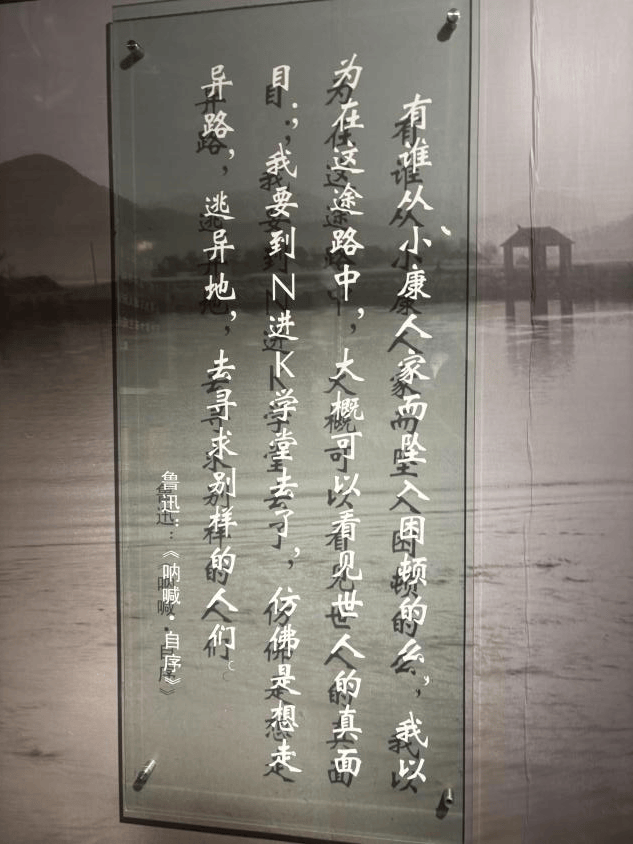 有谁从小康人家而坠入困顿的么，我以
为在这途路中，大概可以看见世人的真面
目；我要到N进K学堂去了，仿佛是想走
异路，逃异地，去寻求别样的人们。
鲁迅：《呐喊·自序》